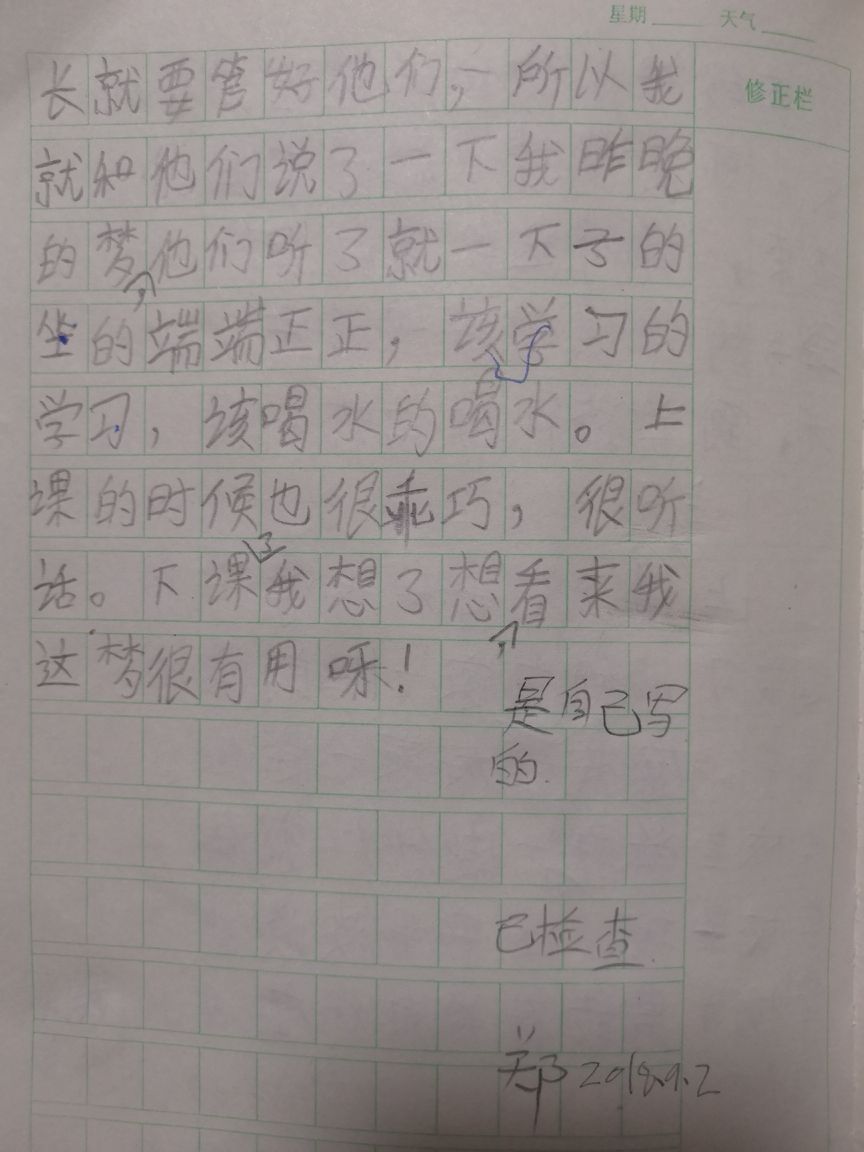 星期 天气
修正栏
长就要管好他们，所以我
就和他们说了一下我昨晚
的梦，他们听了就一下子的
坐的端端正正，该学习的
学习，该喝水的喝水。上
课的时候也很乖巧，很听
话。下课了我想了想，看来我
这梦很有用呀！
是自己写
的.
已检查
郑 2018.9.2